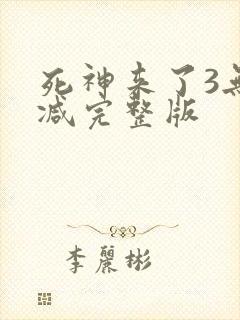 死神来了3無
减完整版
李麗彬